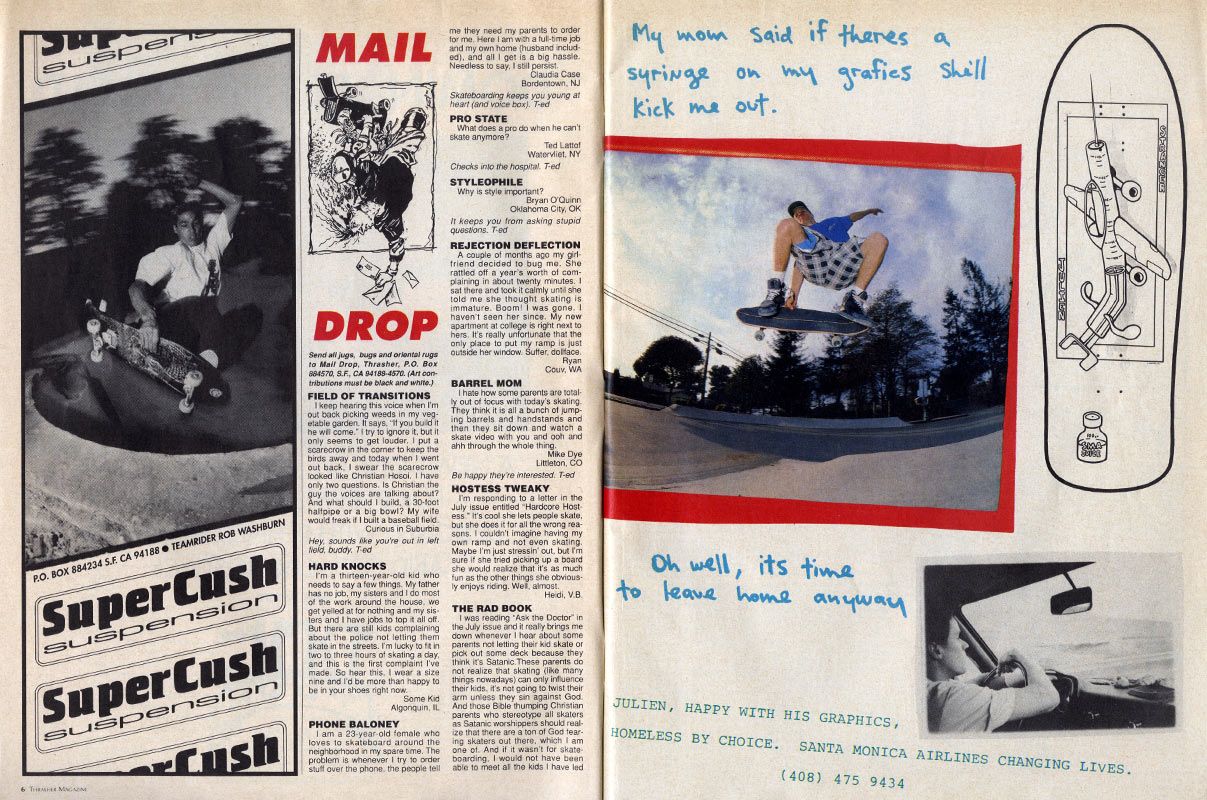 SuperCush
suspension
P.O. BOX 884234 S.F. CA 94188 ● TEAMRIDER ROB WASHBURN
SuperCush
suspension
SuperCush
suspension
SuperCush
6 THRASHER MAGAZINE
MAIL
DROP
Send all jugs, bugs and oriental rugs
to Mail Drop, Thrasher, P.O. Box
884570, S.F., CA 94188-4570. (Art con-
tributions must be black and white.)
FIELD OF TRANSITIONS
I keep hearing this voice when I'm
out back picking weeds in my veg-
etable garden. It says, "If you build it
he will come." I try to ignore it, but it
only seems to get louder. I put a
scarecrow in the corner to keep the
birds away and today when I went
out back, I swear the scarecrow
looked like Christian Hosoi. I have
only two questions. Is Christian the
guy the voices are talking about?
And what should I build, a 30-foot
halfpipe or a big bowl? My wife
would freak if I built a baseball field.
Curious in Suburbia
Hey, sounds like you're out in left
field, buddy. T-ed
HARD KNOCKS
I'm a thirteen-year-old kid who
needs to say a few things. My father
has no job, my sisters and I do most
of the work around the house, we
get yelled at for nothing and my sis-
ters and I have jobs to top it all off.
But there are still kids complaining
about the police not letting them
skate in the streets. I'm lucky to fit in
two to three hours of skating a day,
and this is the first complaint I've
made. So hear this, I wear a size
nine and I'd be more than happy to
be in your shoes right now.
Some Kid
Algonquin, IL
PHONE BALONEY
I am a 23-year-old female who
loves to skateboard around the
neighborhood in my spare time. The
problem is whenever I try to order
stuff over the phone, the people tell
me they need my parents to order
for me. Here I am with a full-time job
and my own home (husband includ-
ed), and all I get is a big hassle.
Needless to say, I still persist.
Claudia Case
Bordentown, NJ
Skateboarding keeps you young at
heart (and voice box). T-ed
PRO STATE
What does a pro do when he can't
skate anymore?
Ted Lattof
Watervliet, NY
Checks into the hospital. T-ed
STYLEOPHILE
Why is style important?
Bryan O'Quinn
Oklahoma City, OK
It keeps you from asking stupid
questions. T-ed
REJECTION DEFLECTION
A couple of months ago my girl-
friend decided to bug me. She
rattled off a year's worth of com-
plaining in about twenty minutes. I
sat there and took it calmly until she
told me she thought skating is
immature. Boom! I was gone. I
haven't seen her since. My new
apartment at college is right next to
hers. It's really unfortunate that the
only place to put my ramp is just
outside her window. Suffer, dollface.
Ryan
Couv, WA
BARREL MOM
I hate how some parents are total-
ly out of focus with today's skating.
They think it is all a bunch of jump-
ing barrels and handstands and
then they sit down and watch a
skate video with you and ooh and
ahh through the whole thing.
Mike Dye
Littleton, CO
Be happy they're interested. T-ed
HOSTESS TWEAKY
I'm responding to a letter in the
July issue entitled "Hardcore Host-
ess." It's cool she lets people skate,
but she does it for all the wrong rea-
sons. I couldn't imagine having my
own ramp and not even skating.
Maybe I'm just stressin' out, but I'm
sure if she tried picking up a board
she would realize that it's as much
fun as the other things she obvious-
ly enjoys riding. Well, almost.
Heidi, V.B.
THE RAD BOOK
I was reading "Ask the Doctor" in
the July issue and it really brings me
down whenever I hear about some
parents not letting their kid skate or
pick out some deck because they
think it's Satanic. These parents do
not realize that skating (like many
things nowadays) can only influence
their kids, it's not going to twist their
arm unless they sin against God.
And those Bible thumping Christian
parents who stereotype all skaters
as Satanic worshippers should real-
ize that there are a ton of God fear-
ing skaters out there, which I am
one of. And if it wasn't for skate-
boarding, I would not have been
able to meet all the kids I have led
My mom said if theres a
syringe on my grafics she'll
kick me out.
SMA
JUICE
Oh well, its time
to leave home anyway
JULIEN, HAPPY WITH HIS GRAPHICS,
HOMELESS BY CHOICE. SANTA MONICA AIRLINES CHANGING LIVES.
(408) 475 9434